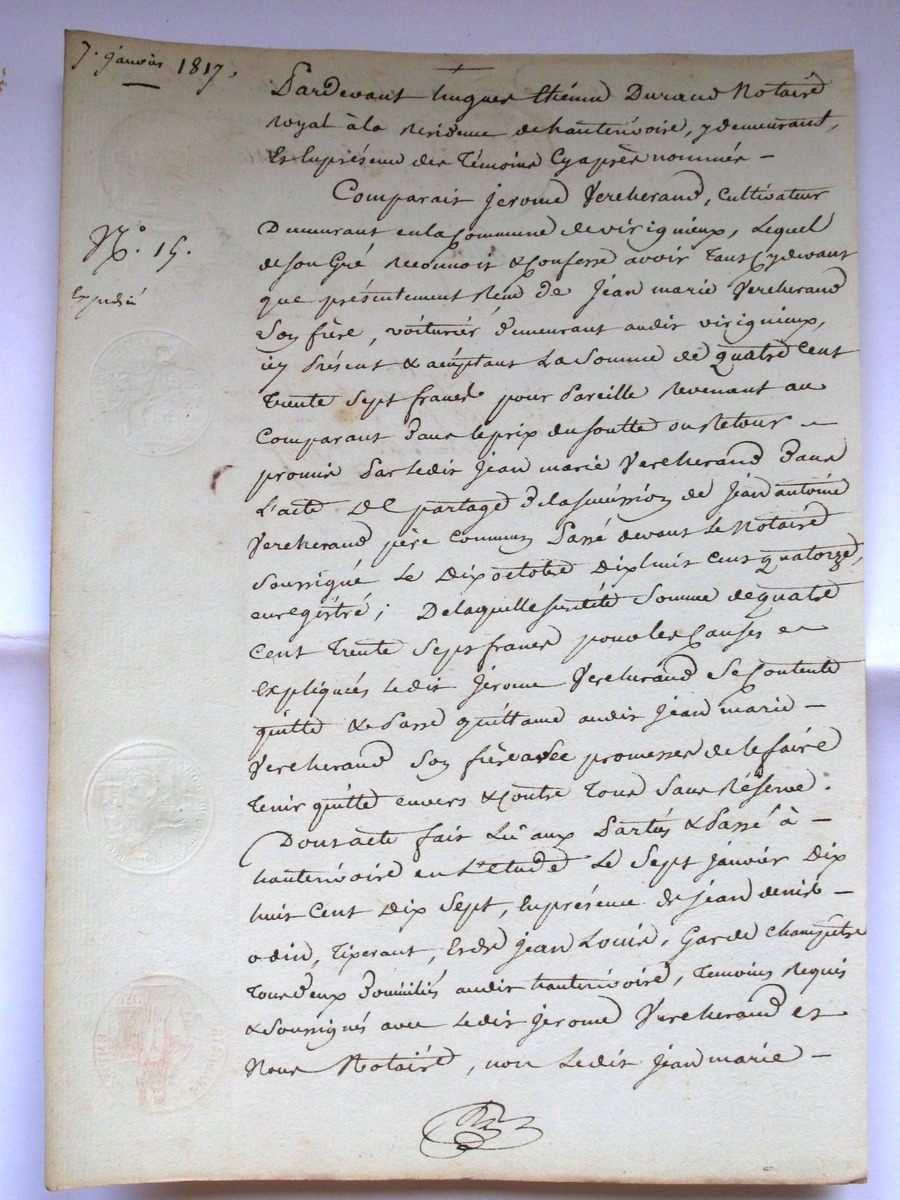 7. janvier 1817,
Pardevant hugues Etienne Durand Notaire
royal à la residence de hauterivoire, y demeurant,
Et En présence des Témoins Cy après nommés —
N.° 15.
Expedié
Comparait jerome Vercherand, Cultivateur
Demeurant en la Commune de virigneux, Lequel
de son Gré reconnoit & Confesse avoir Tant Cy devant
que présentement Reçu de jean marie Vercherand
Son frère, voiturier, demeurant audit virigneux,
icy Présent & acceptant La Somme de quatre Cent
Trente Sept francs pour Pareille revenant au
Comparant dans le prix du soutte ou Retour —
promis Par Ledit jean marie Vercherand dans
L'acte de partage de la succession de jean antoine
Vercherand père Commun Passé devant Le Notaire
Soussigné Le dix octobre dix huit Cent quatorze,
enregistré ; De laquelle susdite Somme de quatre
Cent Trente Sept francs pour les Causes —
Expliquées Ledit jerome Vercherand Se Contente
quitte & Passe quittance audit jean marie —
Vercherand Son frère avec promesses de le faire
Tenir quitte envers & Contre Tous Sans Réserve.
Dont acte fait Lu aux Parties & Passé à —
hauterivoire en L'etude Le Sept janvier Dix
huit Cent Dix Sept, En présence de jean denis —
odin, Tixerant, Et de jean Louis, Garde Champêtre
Tous deux Domiciliés audit hauterivoire, Temoins Requis
& Soussignés avec Ledit jerome Vercherand et
Nous Notaire, non Ledit jean marie —